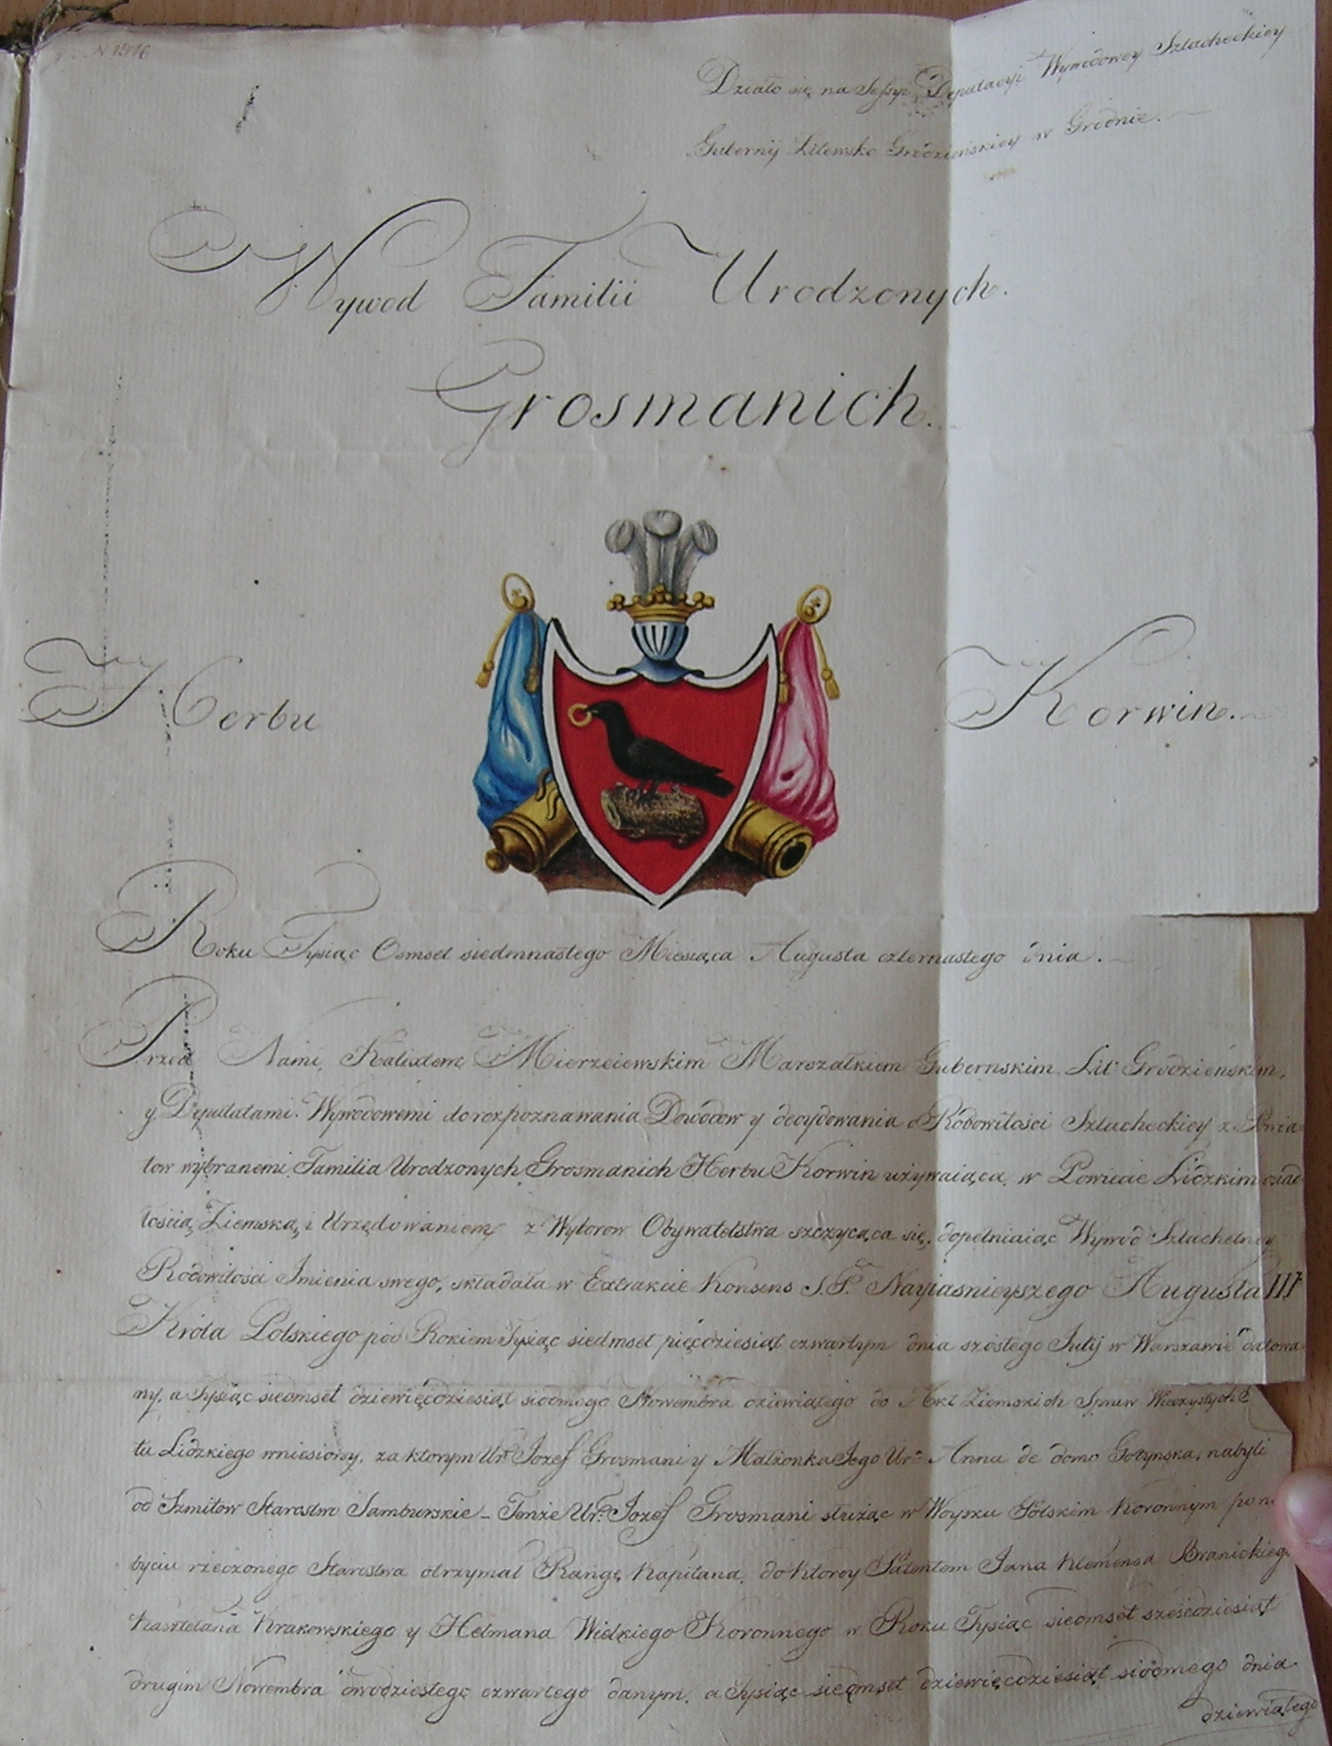 N 1516
Działo się na Sessyi Deputacyi Wywodowey Szlacheckiey
Gubernij Litewsko Grodzieńskiey w Grodnie.
Wywod Familii Urodzonych.
Grosmanich.
Herbu Korwin.
Roku Tysiąc Osmset siedmnastego Miesiąca Augusta czternastego dnia.
Przed Nami Kalixtem Mierzeiewskim Marszałkiem Gubernskim Lit: Grodzieńskim,
y Deputatami Wywodowemi do rozpoznawania Dowodow y decydowania o Rodowitości Szlacheckiey z Powia
tow wybranemi Familia Urodzonych Grosmanich Herbu Korwin używaiąca, w Powiecie Lidzkim osiad
łością Ziemską i Urzędowaniem z Wyborow Obywatelstwa szczycąca się, dopełniaiąc Wywod Szlachetney
Rodowitości Imienia swego, składała w Extrakcie Konsens S. P. Nayiasnieyszego Augusta III
Króla Polskiego pod Rokiem Tysiąc siedmset pięćdziesiąt czwartym dnia szostego Julij w Warszawie datowa
ny, a Tysiąc siedmset dziewięćdziesiąt siodmego Nowembra dziewiątego do Akt Ziemskich Spraw Wieczystych
tu Lidzkiego wniesiony, za ktorym Ur: Jozef Grosmani y Małżonka Jego Ur: Anna de domo Gotynska, nabyli
od Szmitow Starostwo Jamborskie – Tenże Ur: Jozef Grosmani służąc w Woysku Polskim Koronnym po na
byciu rzeczonego Starostwa otrzymał Rangę Kapitana, do ktorey Patentem Jana Klemensa Branickiego
Kasztelana Krakowskiego y Hetmana Wielkiego Koronnego w Roku Tysiąc siedmset sześćdziesiąt
drugim Nowembra dwudziestego czwartego danym, a Tysiąc siedmset dziewięćdziesiąt siodmego dnia
dziewiątego